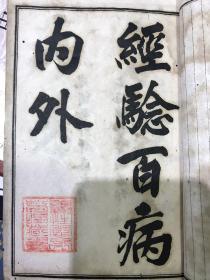 經驗百病
内外